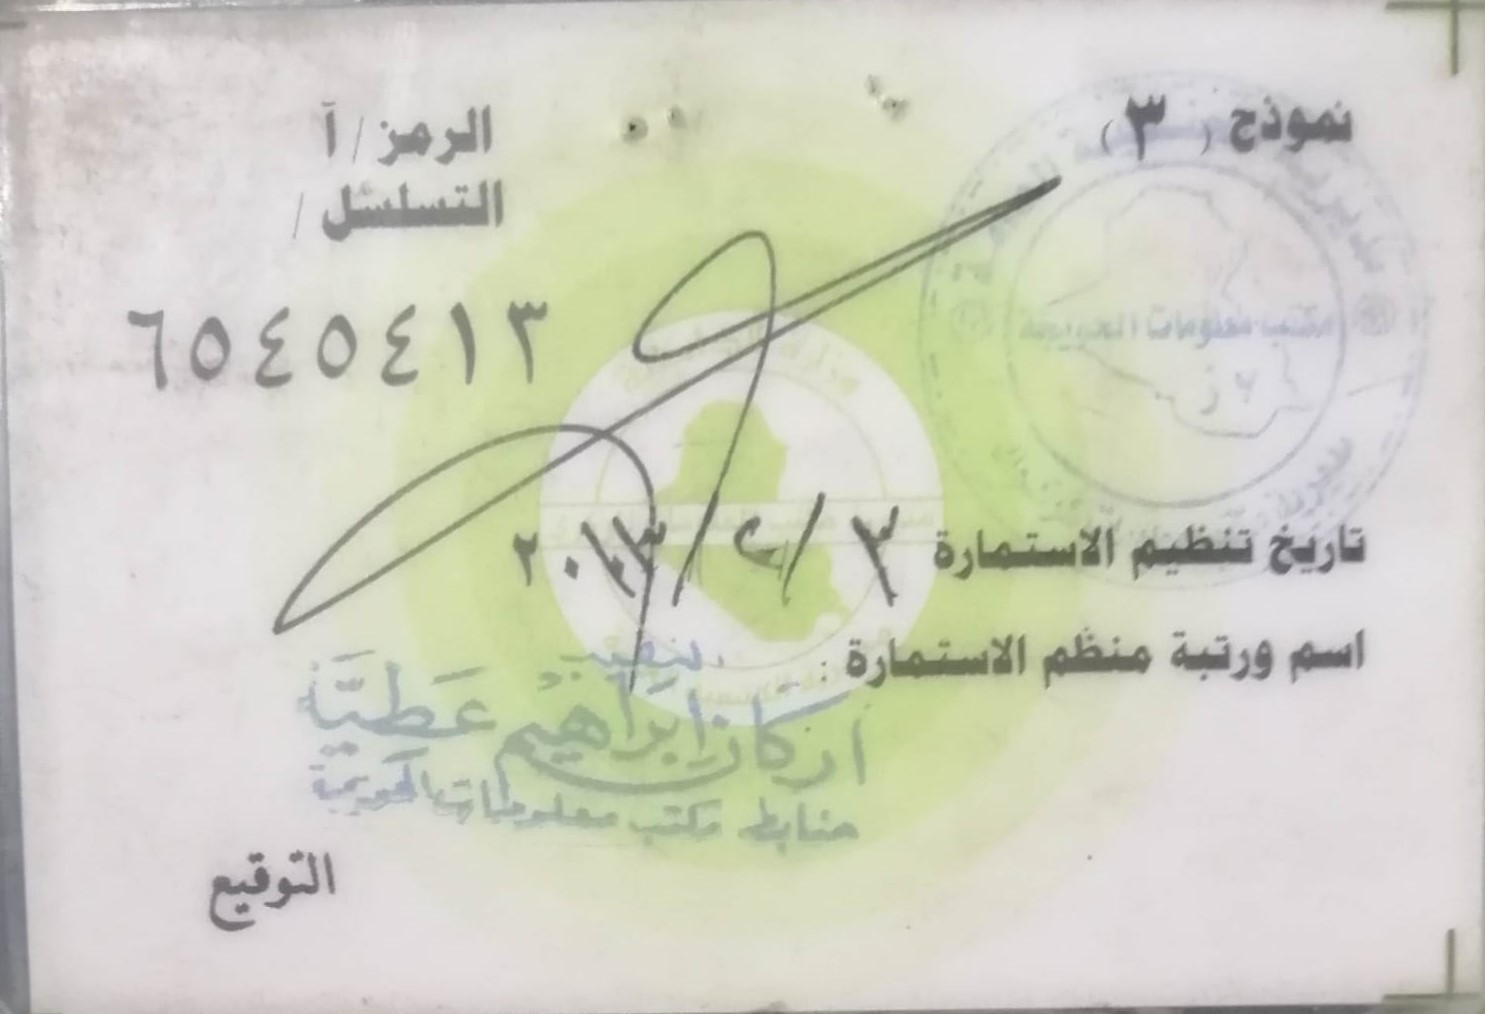 نموذج (٣)
الرمز / آ
التسلسل /
٦٥٤٥٤١٣
مكتب معلومات الحويجة
تاريخ تنظيم الاستمارة ٣ / ٢ / ٢٠١٣
اسم ورتبة منظم الاستمارة :
النقيب
اركان ابراهيم عطية
ضابط مكتب معلومات الحويجة
التوقيع